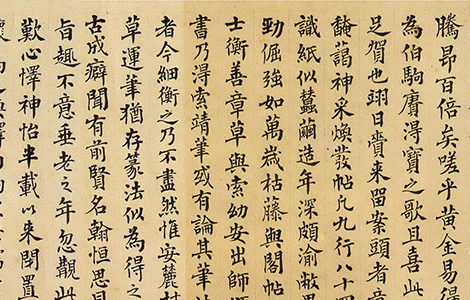 騰昂百倍矣嗟乎黃金易得
為伯駒賡得寶之歌且喜此
足賀也翊日賫來留案頭者
馣藹神采煥發帖凡九行八十四
識紙似蠶繭造年深頗渝敝
勁倔強如萬歲枯藤與閣帖
士衡善章草與索幼安出師
書乃得索靖筆或有論其筆
者今細衡之乃不盡然惟安麓
草運筆猶存篆法似為得之
古成癖聞有前賢名翰恒思
旨趣不意垂老之年忽覩此
歡心懌神怡半載以來閉置